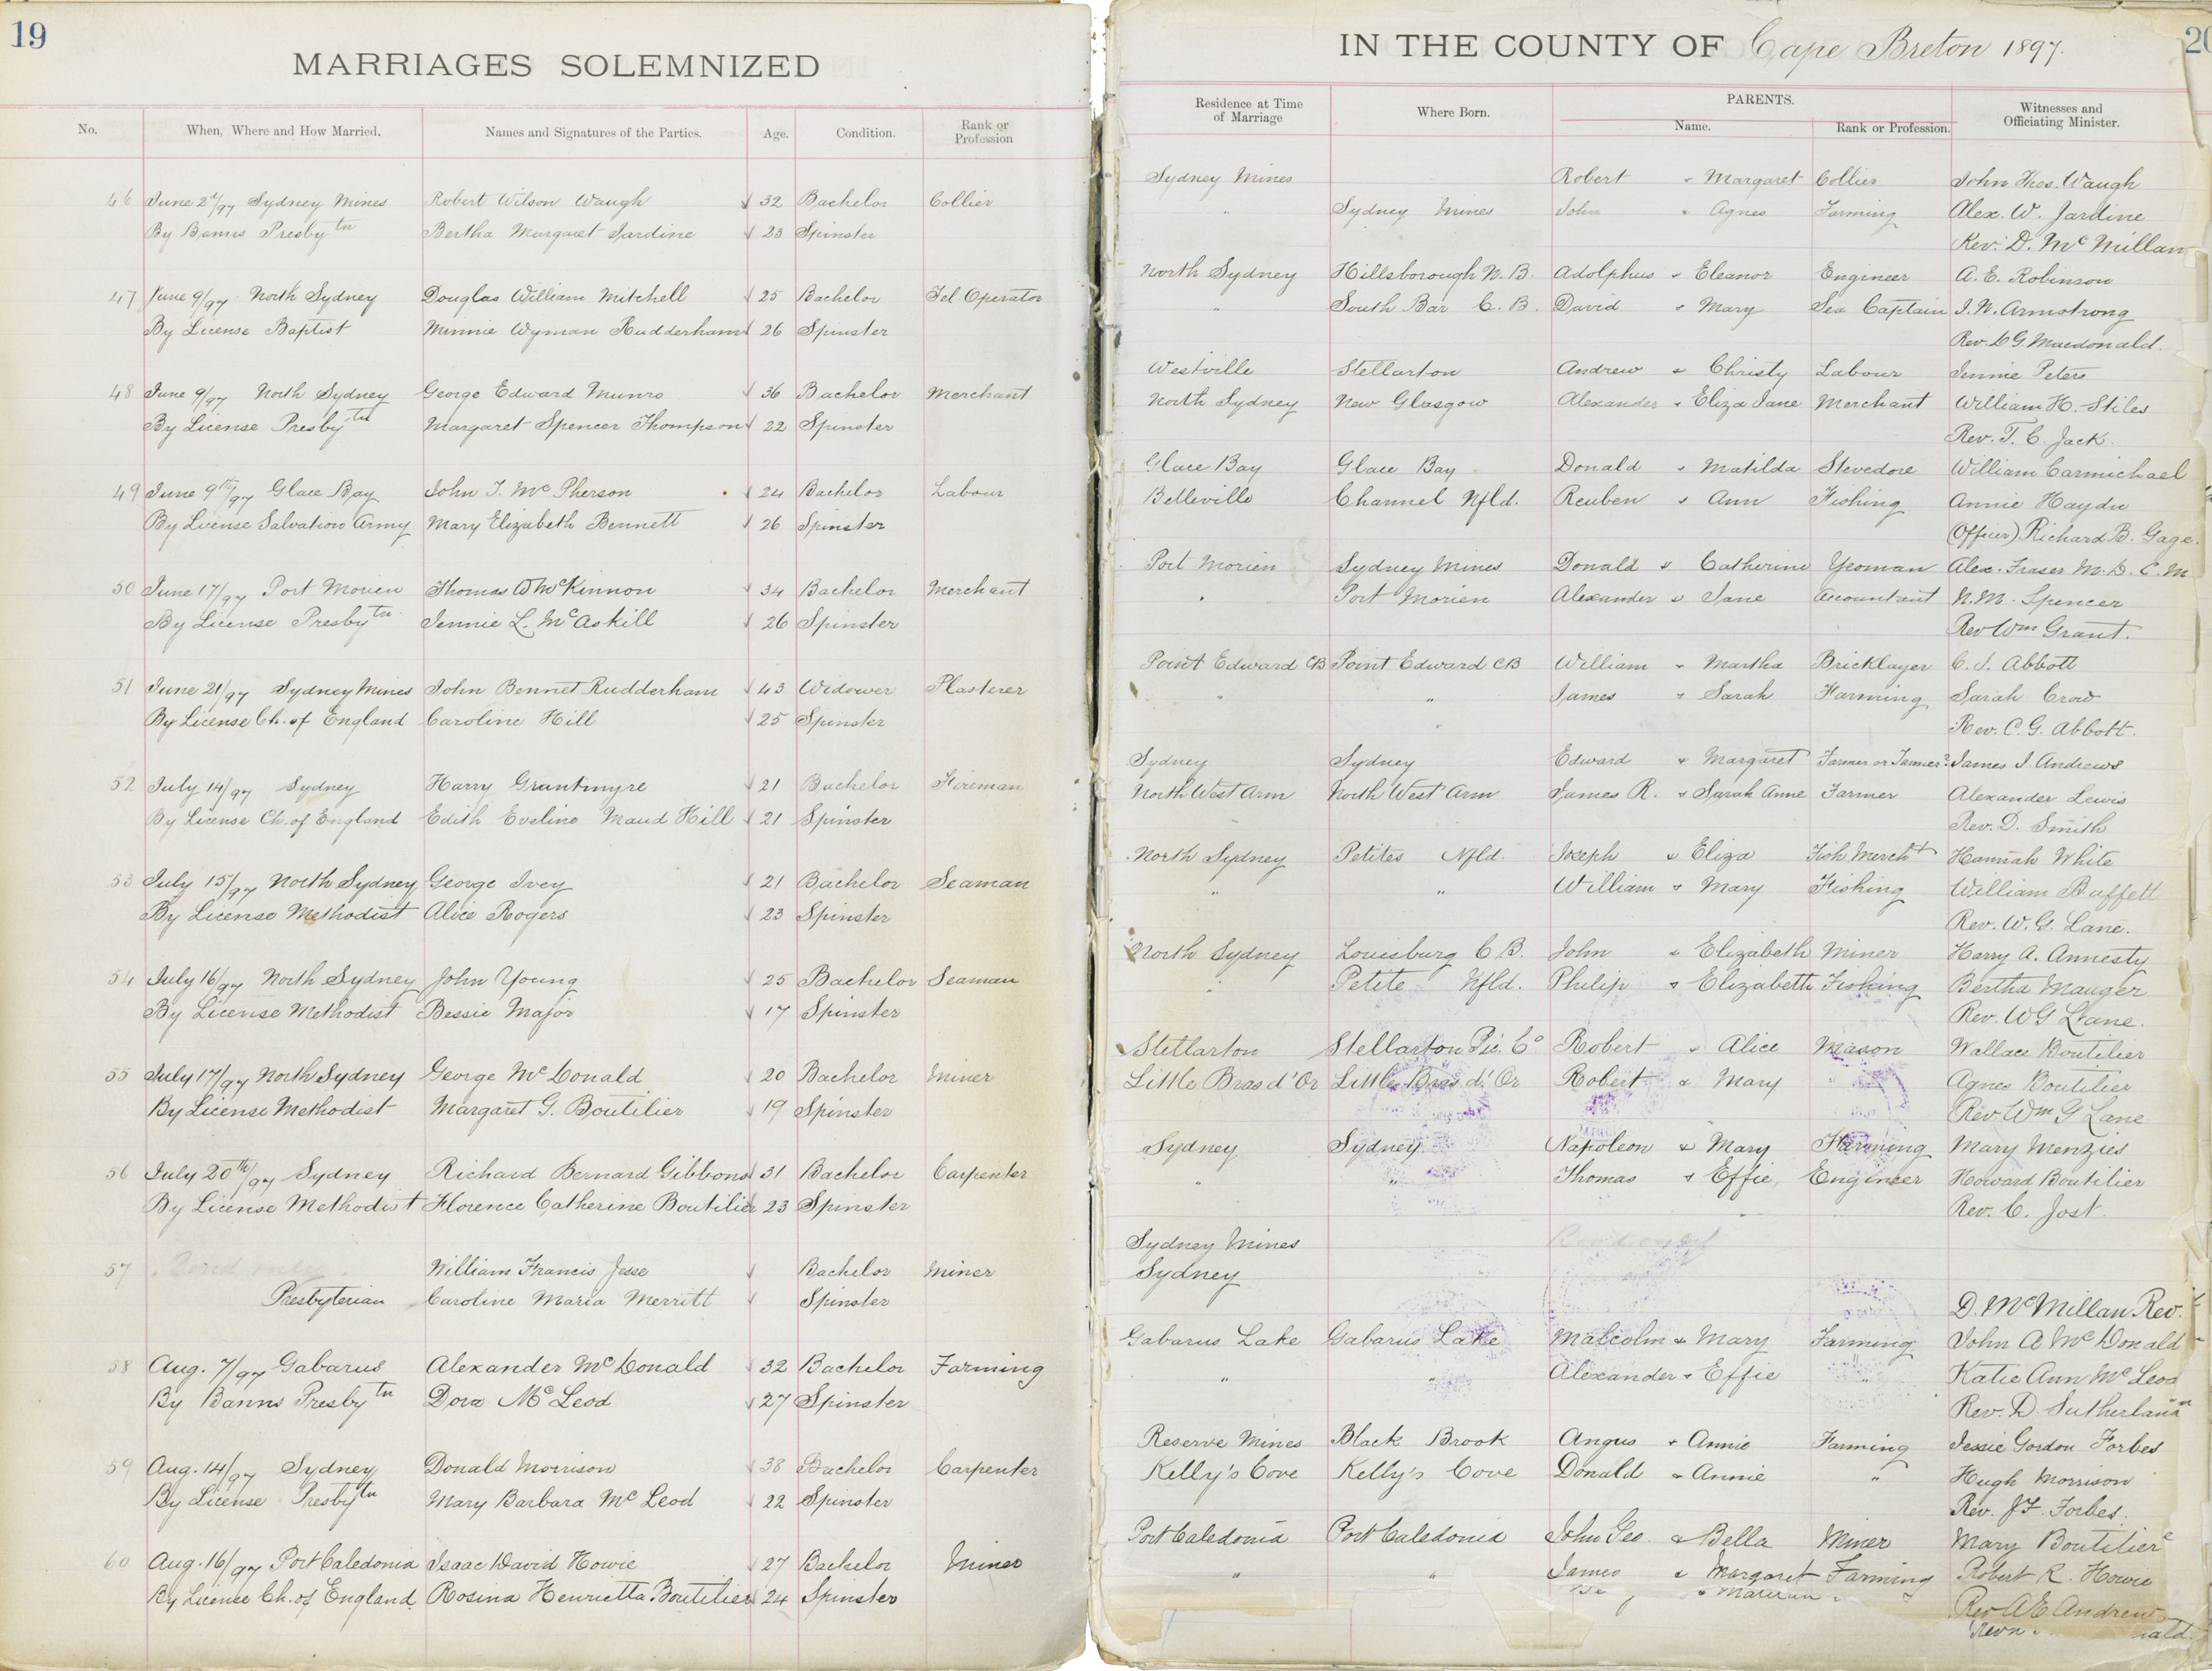 19
MARRIAGES SOLEMNIZED
No.
When, Where and How Married.
Names and Signatures of the Parties.
Age.
Condition.
Rank or
Profession
46 June 2nd/97 Sydney Mines Robert Wilson Waugh 32 Bachelor Collier
By Banns Presbytn Bertha Margaret Jardine 23 Spinster
47 June 9/97 North Sydney Douglas William Mitchell 25 Bachelor Tel. Operator
By License Baptist Minnie Wyman Rudderham 26 Spinster
48 June 9/97 North Sydney George Edward Munro 36 Bachelor Merchant
By License Presbytn Margaret Spencer Thompson 22 Spinster
49 June 9th/97 Glace Bay John J. McPherson 24 Bachelor Labour
By License Salvation Army Mary Elizabeth Bennett 26 Spinster
50 June 17/97 Port Morien Thomas D McKinnon 34 Bachelor Merchant
By License Presbytn Jennie L. McAskill 26 Spinster
51 June 21/97 Sydney Mines John Bennet Rudderham 43 Widower Plasterer
By License Ch. of England Caroline Hill 25 Spinster
52 July 14/97 Sydney Harry Grantmyre 21 Bachelor Fireman
By License Ch. of England Edith Eveline Maud Hill 21 Spinster
53 July 15/97 North Sydney George Ivey 21 Bachelor Seaman
By License Methodist Alice Rogers 23 Spinster
54 July 16/97 North Sydney John Young 25 Bachelor Seaman
By License Methodist Bessie Major 17 Spinster
55 July 17/97 North Sydney George McDonald 20 Bachelor Miner
By License Methodist Margaret G. Boutilier 19 Spinster
56 July 20th/97 Sydney Richard Bernard Gibbons 31 Bachelor Carpenter
By License Methodist Florence Catherine Boutilier 23 Spinster
57 Bond only William Francis Jesse Bachelor Miner
Presbyterian Caroline Maria Merritt Spinster
58 Aug. 7/97 Gabarus Alexander McDonald 32 Bachelor Farming
By Banns Presbytn Dora McLeod 27 Spinster
59 Aug. 14/97 Sydney Donald Morrison 38 Bachelor Carpenter
By License Presbytn Mary Barbara McLeod 22 Spinster
60 Aug. 16/97 Port Caledonia Isaac David Howie 27 Bachelor Miner
By License Ch. of England Rosina Henrietta Boutilier 24 Spinster
20
IN THE COUNTY OF Cape Breton 1897.
Residence at Time
of Marriage
Where Born.
PARENTS.
Name.
Rank or Profession.
Witnesses and
Officiating Minister.
Sydney Mines Robert & Margaret Collier John Thos. Waugh
" Sydney Mines John & Agnes Farming Alex. W. Jardine
Rev. D. McMillan
North Sydney Hillsborough N. B. Adolphus & Eleanor Engineer A. E. Robinson
" South Bar C. B. David & Mary Sea Captain J. W. Armstrong
Rev. D G. Macdonald.
Westville Stellarton Andrew & Christy Labour Jennie Peters
North Sydney New Glasgow Alexander & Eliza Jane Merchant William H. Stiles
Rev. T. C. Jack.
Glace Bay Glace Bay Donald & Matilda Stevedore William Carmichael
Belleville Channel Nfld. Reuben & Ann Fishing Annie Haydn
(Officer) Richard B. Gage.
Port Morien Sydney Mines Donald & Catherine Yeoman Alex. Fraser M. D. C. M
" Port Morien Alexander & Jane Accountant N. M. Spencer
Rev Wm Grant.
Point Edward CB Point Edward CB William & Martha Bricklayer C. S. Abbott
" " James & Sarah Farming Sarah Crow
" Rev. C. G. Abbott.
Sydney Sydney Edward & Margaret Farmer or Tanner? James J. Andrews
North West Arm North West Arm James R. & Sarah Anne Farmer Alexander Lewis
Rev. D. Smith
North Sydney Petites Nfld. Joseph & Eliza Fish Mercht Hannah White
" " William & Mary Fishing William Buffett
Rev. W. G. Lane.
North Sydney Louisburg C B. John & Elizabeth Miner Harry A. Annesty
" Petite Nfld. Philip & Elizabeth Fishing Bertha Mauger
Rev. W G Lane.
Stellarton Stellarton Pic. Co Robert & Alice Mason Wallace Boutilier
Little Bras d'Or Little Bras d'Or Robert & Mary " Agnes Boutilier
Rev Wm G Lane
Sydney Sydney Napoleon & Mary Farming Mary Menzies
" " Thomas & Effie Engineer Howard Boutilier
Rev. C. Jost.
Sydney Mines Bond only
Sydney
D. McMillan Rev.
Gabarus Lake Gabarus Lake Malcolm & Mary Farming John A McDonald
" " Alexander & Effie " Katie Ann McLeod
Rev. D. Sutherland
Reserve Mines Black Brook Angus & Annie Farming Jessie Gordon Forbes
Kelly's Cove Kelly's Cove Donald & Annie " Hugh Morrison
Rev. J F. Forbes.
Port Caledonia Port Caledonia John Geo. & Bella Miner Mary Boutilier
" " James & Margaret Farming Robert R. Howie
Rev A E Andrew